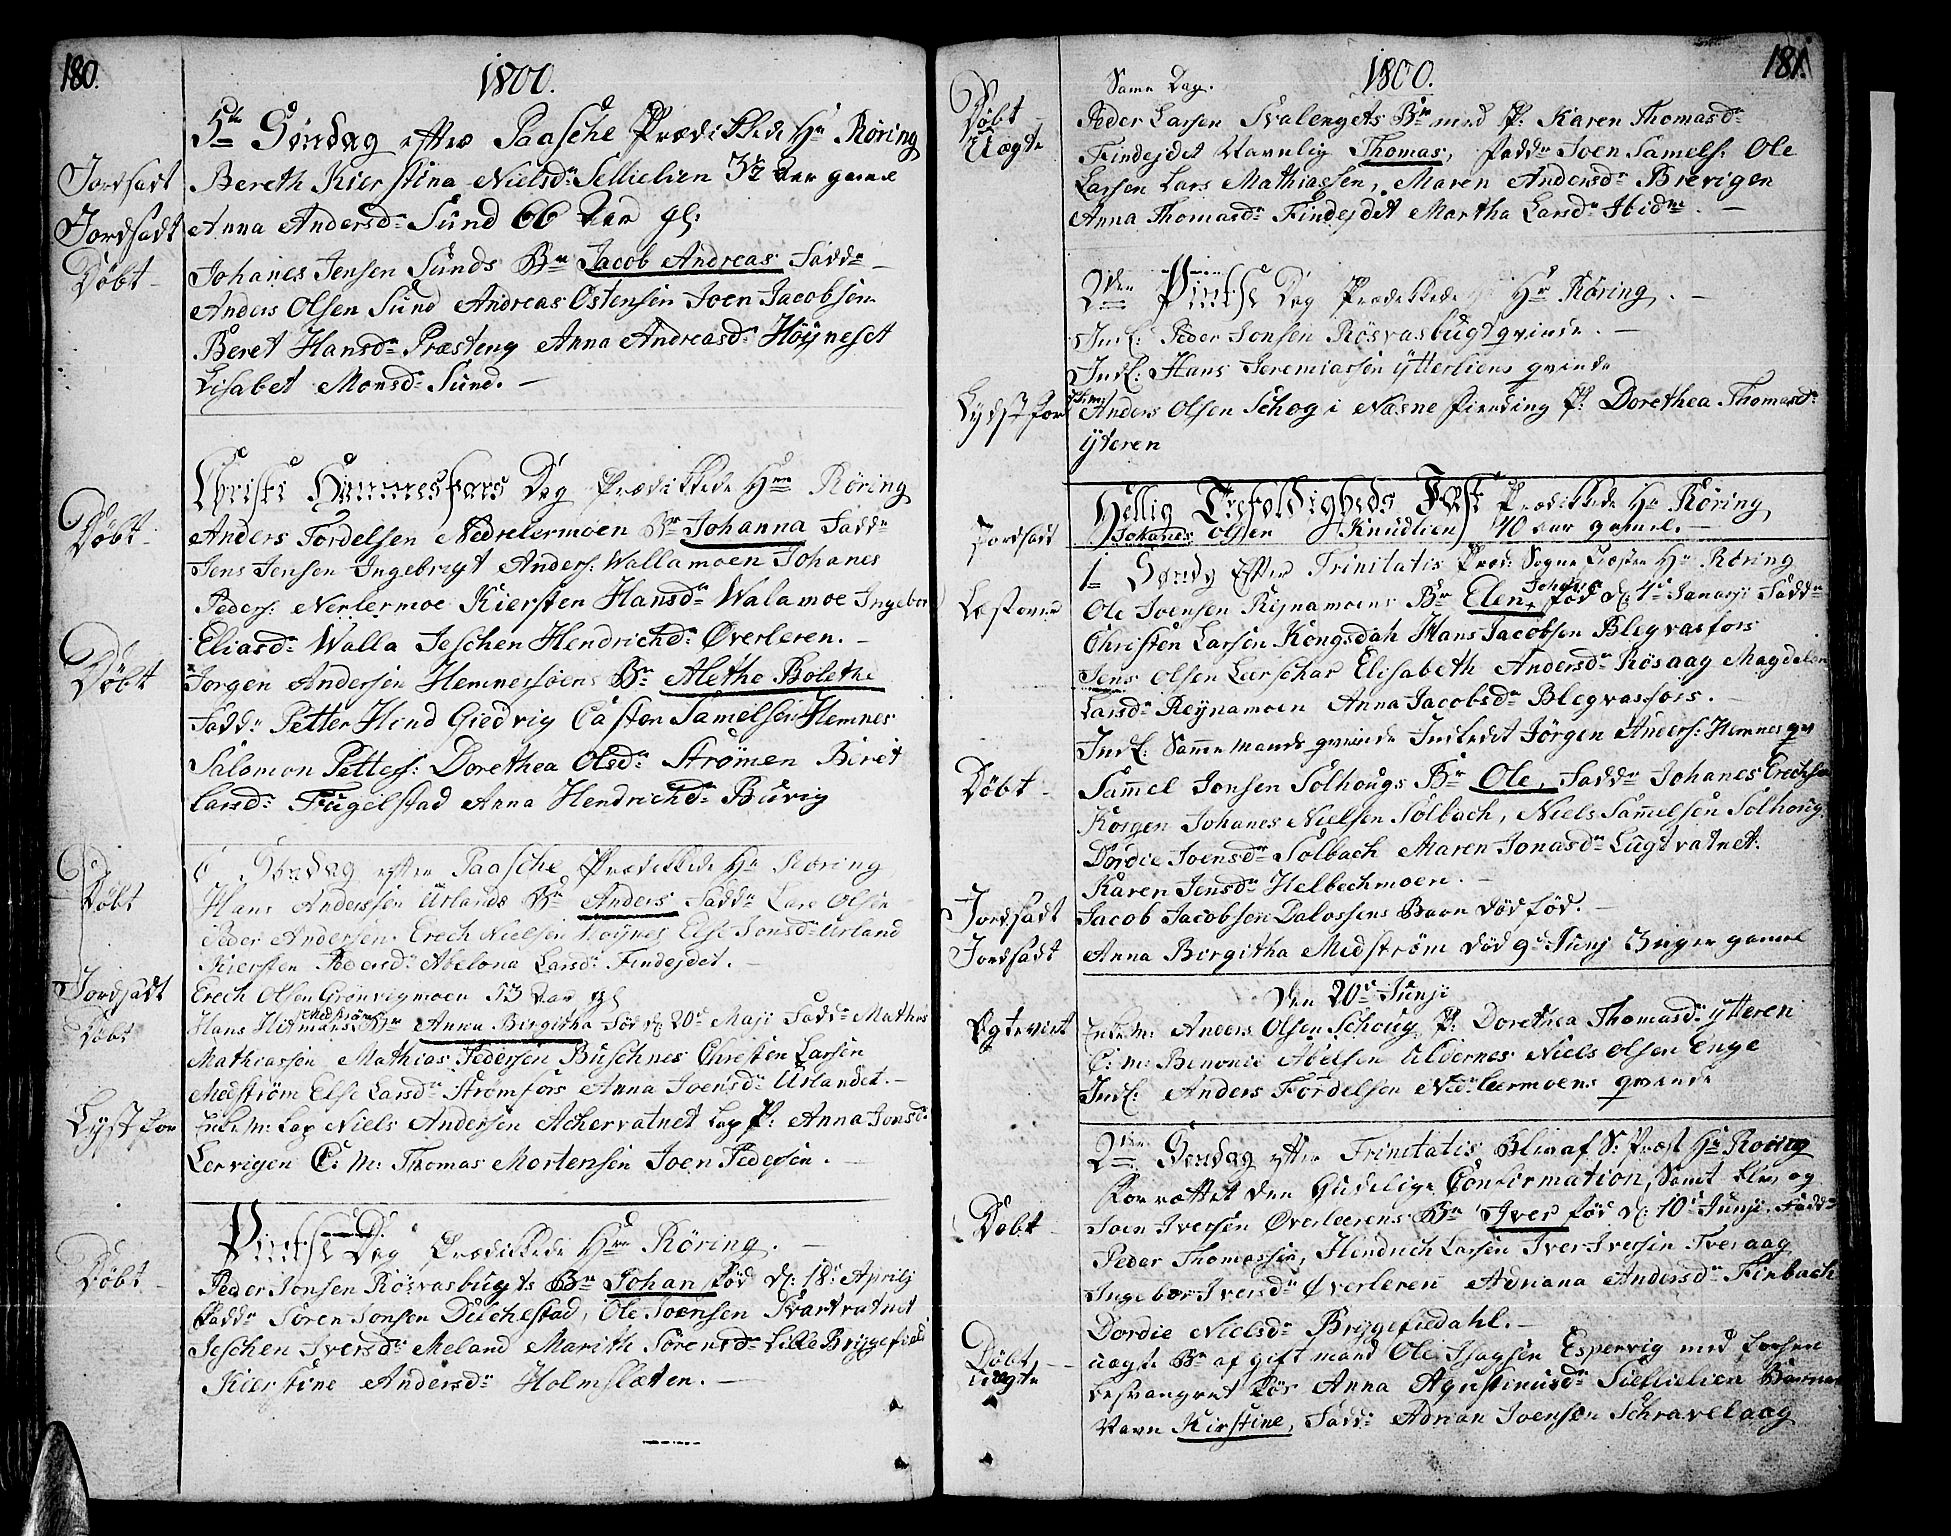 180.
1800.
5te Søndag efter Paasche Prædikkede Hr Røring
Jordfæst Bereth Kierstina Nielsdr Sellielien 3½ Aar gamel
Jordfæst Anna Andersdr Sund 66 Aar gl:
Døbt Johanes Jensen Sunds Bn Jacob Andreas Faddr
Anders Olsen Sund Andreas Ostensen Joen Jacobsen
Beret Hansdr Præsteng Anna Andreasdr Höÿneset
Lisabet Monsdr Sund.
Christi Himmelfars Dag Prædikkede Hrr Røring
Døbt Anders Fordelsen Nedrelermoen Bn Johanna Faddr
Jens Jensen Ingebregt Anders: Wallamoen Johanes
Peders: Nerlermoe Kiersten Hansdr Walamoe Ingebor
Eliasdr Walla Jeschen Hendrichdr Øverleren.
Døbt Jørgen Andersen Hemnesøens Bn Alethe Bolethe
Faddr Petter Hind Giedvig Castor Samelsen Hemnes
Salomon Petters: Dorethea Olsdr Strømen Biret
Larsdr Fugelstad Anna Hendrichdr Buvig
6 Søndag efter Paasche Prædikkede Hr Røring
Døbt Hans Anderssen Urlands Bn Anders Faddr Lars Olsen
Peder Andersen Erech Nielsen Else Jonsdr Urland
Kiersten Pedersdr Abelona Larsdr Findejdet.
Jordfæst Erech Olsen Grønvigmoen 53 Aar gl
Døbt Hans Hitmans Medstrøm Bn Anna Birgitha Fød d. 20de Maji Faddr Mathis
Mathiassen Mathias Pedersen Buschnes Christen Larsen
Medstrøm Else Larsdr Strømfors Anna Joensdr Urlandet.
Lyst for Lap Niels Andersen Achervatnet Lap P: Anna Jonsdr
Lervigen C: M: Thomas Mortensen Joen Pedersen.
Pintse Dag Prædikkede Hrr Røring.
Døbt Peder Jonsen Rösvasbugts Bn Johan fød d: 18de Aprilj
Faddr Sören Jonsen Ole Joensen Svartvatnet
Jeschen Iversdr Meland Marith Sörensdr Lille Bryggefield
Kierstine Andersdr Holmslæten.
181.
1800.
Same Dag.
Døbt Uægte Peder Larsen Svalengets Bn med P: Karen Thomasdr
Findejdet Navnlig Thomas, Faddr Joen Samels: Ole
Larsen Lars Mathiassen, Maren Andersdr Brevigen
Anna Thomasdr Findejdet Martha Larsdr Ibidm.
2den Pintse Dag Prædikkede Hr Røring.
Indl: Peder Jonsen Rösvasbugt qvinde.
Indl: Hans Jeremiassen Ytterliens qvinde
Lydst for Anders Olsen Schog i Næsne P: Dorethea Thomasdr
ÿteren
Hellig Trefoldigheds Fest Prædikkede Hr Røring
Jordfæst Johanes Olssen Knudlien 40 aar gamel.
1te Søndg Efter Trinitatis Præd: Sogne Præsten Hr Røring
Ole Joensen Reÿnamoens Bn Elen Johana fød d: 4de Januarji Faddr
Christen Larsen Kongsdah Hans Jacobsen Blegvasfors
Jens Olsen Leerschar Elisabeth Andersdr Rösaag Magdelen
Larsdr Reÿnamoen Anna Jacobsdr Blegvasfors.
Indl: Samme mands qvinde Indledet Jörgen Anders: Hemnes qv
Døbt Samel Jonsen Solhougs Bn Ole, Faddr Johanes Erechsen
Korgen Johanes Nielsen Solbach, Niels Samelsen Solhoug
Dordie Joensdr Solbach Maren Jonasdr Lugtvatnet.
Karen Jensdr Helbechmoen.
Jordfæst Jacob Jacobsen Dalossens Barn död föd.
Jordfæst Anna Birgitha Medström död 9de Junj 3 uger gamel
Den 20de Junji
Ægteviet Anders Olsen Schoug P: Dorethea Thomasdr ÿtteren
C: M: Benonie Abelsen Uldernes Niels Olsen Enge
Indl: Anders Fordelsen Nedleermoens qvinde
2den Søndag efter Trinitatis Blev af S: Præst Hr Røring
Forrættet den Gudelige Confirmation, Samt blev og
Døbt Joen Iversen Øverleerens Bn Iver fød d: 10de Junji Faddr
Peder Thomassen, Hendrich Larsen Iver Iversen Tveraag
Ingebor Iversdr Øverleren Adriana Andersdr Finbach
Dordie Nielsdr Bryggefieldahl.
Døbt uægte uægte Bn af gift mand Ole Isagsen Espervig med forhen
besvangret Tös Anna Agustinusdr Siellielien Barnes
Navn Kirstine, Fadd: Adrian Joensen Schravelaag